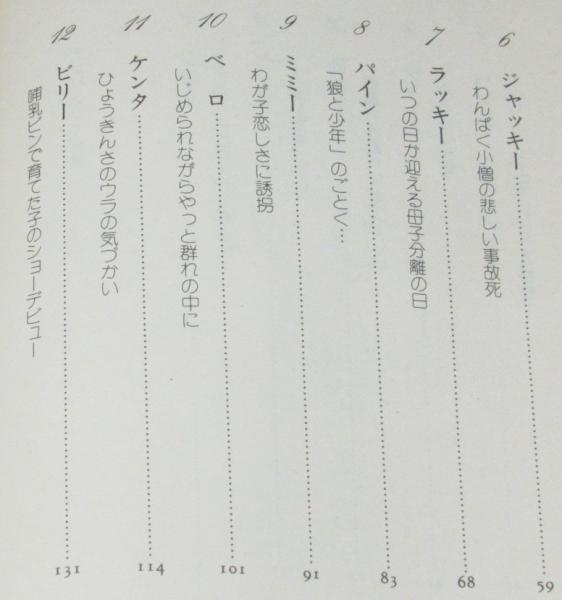 6 ジャッキー……59
わんぱく小僧の悲しい事故死
7 ラッキー……68
いつの日か迎える母子分離の日
8 パイン……83
「狼と少年」のごとく…
9 ミミー……91
わが子恋しさに誘拐
10 ベロ……101
いじめられながらやっと群れの中に
11 ケンタ……114
ひょうきんさのウラの気づかい
12 ビリー……131
哺乳ビンで育てた子のショーデビュー